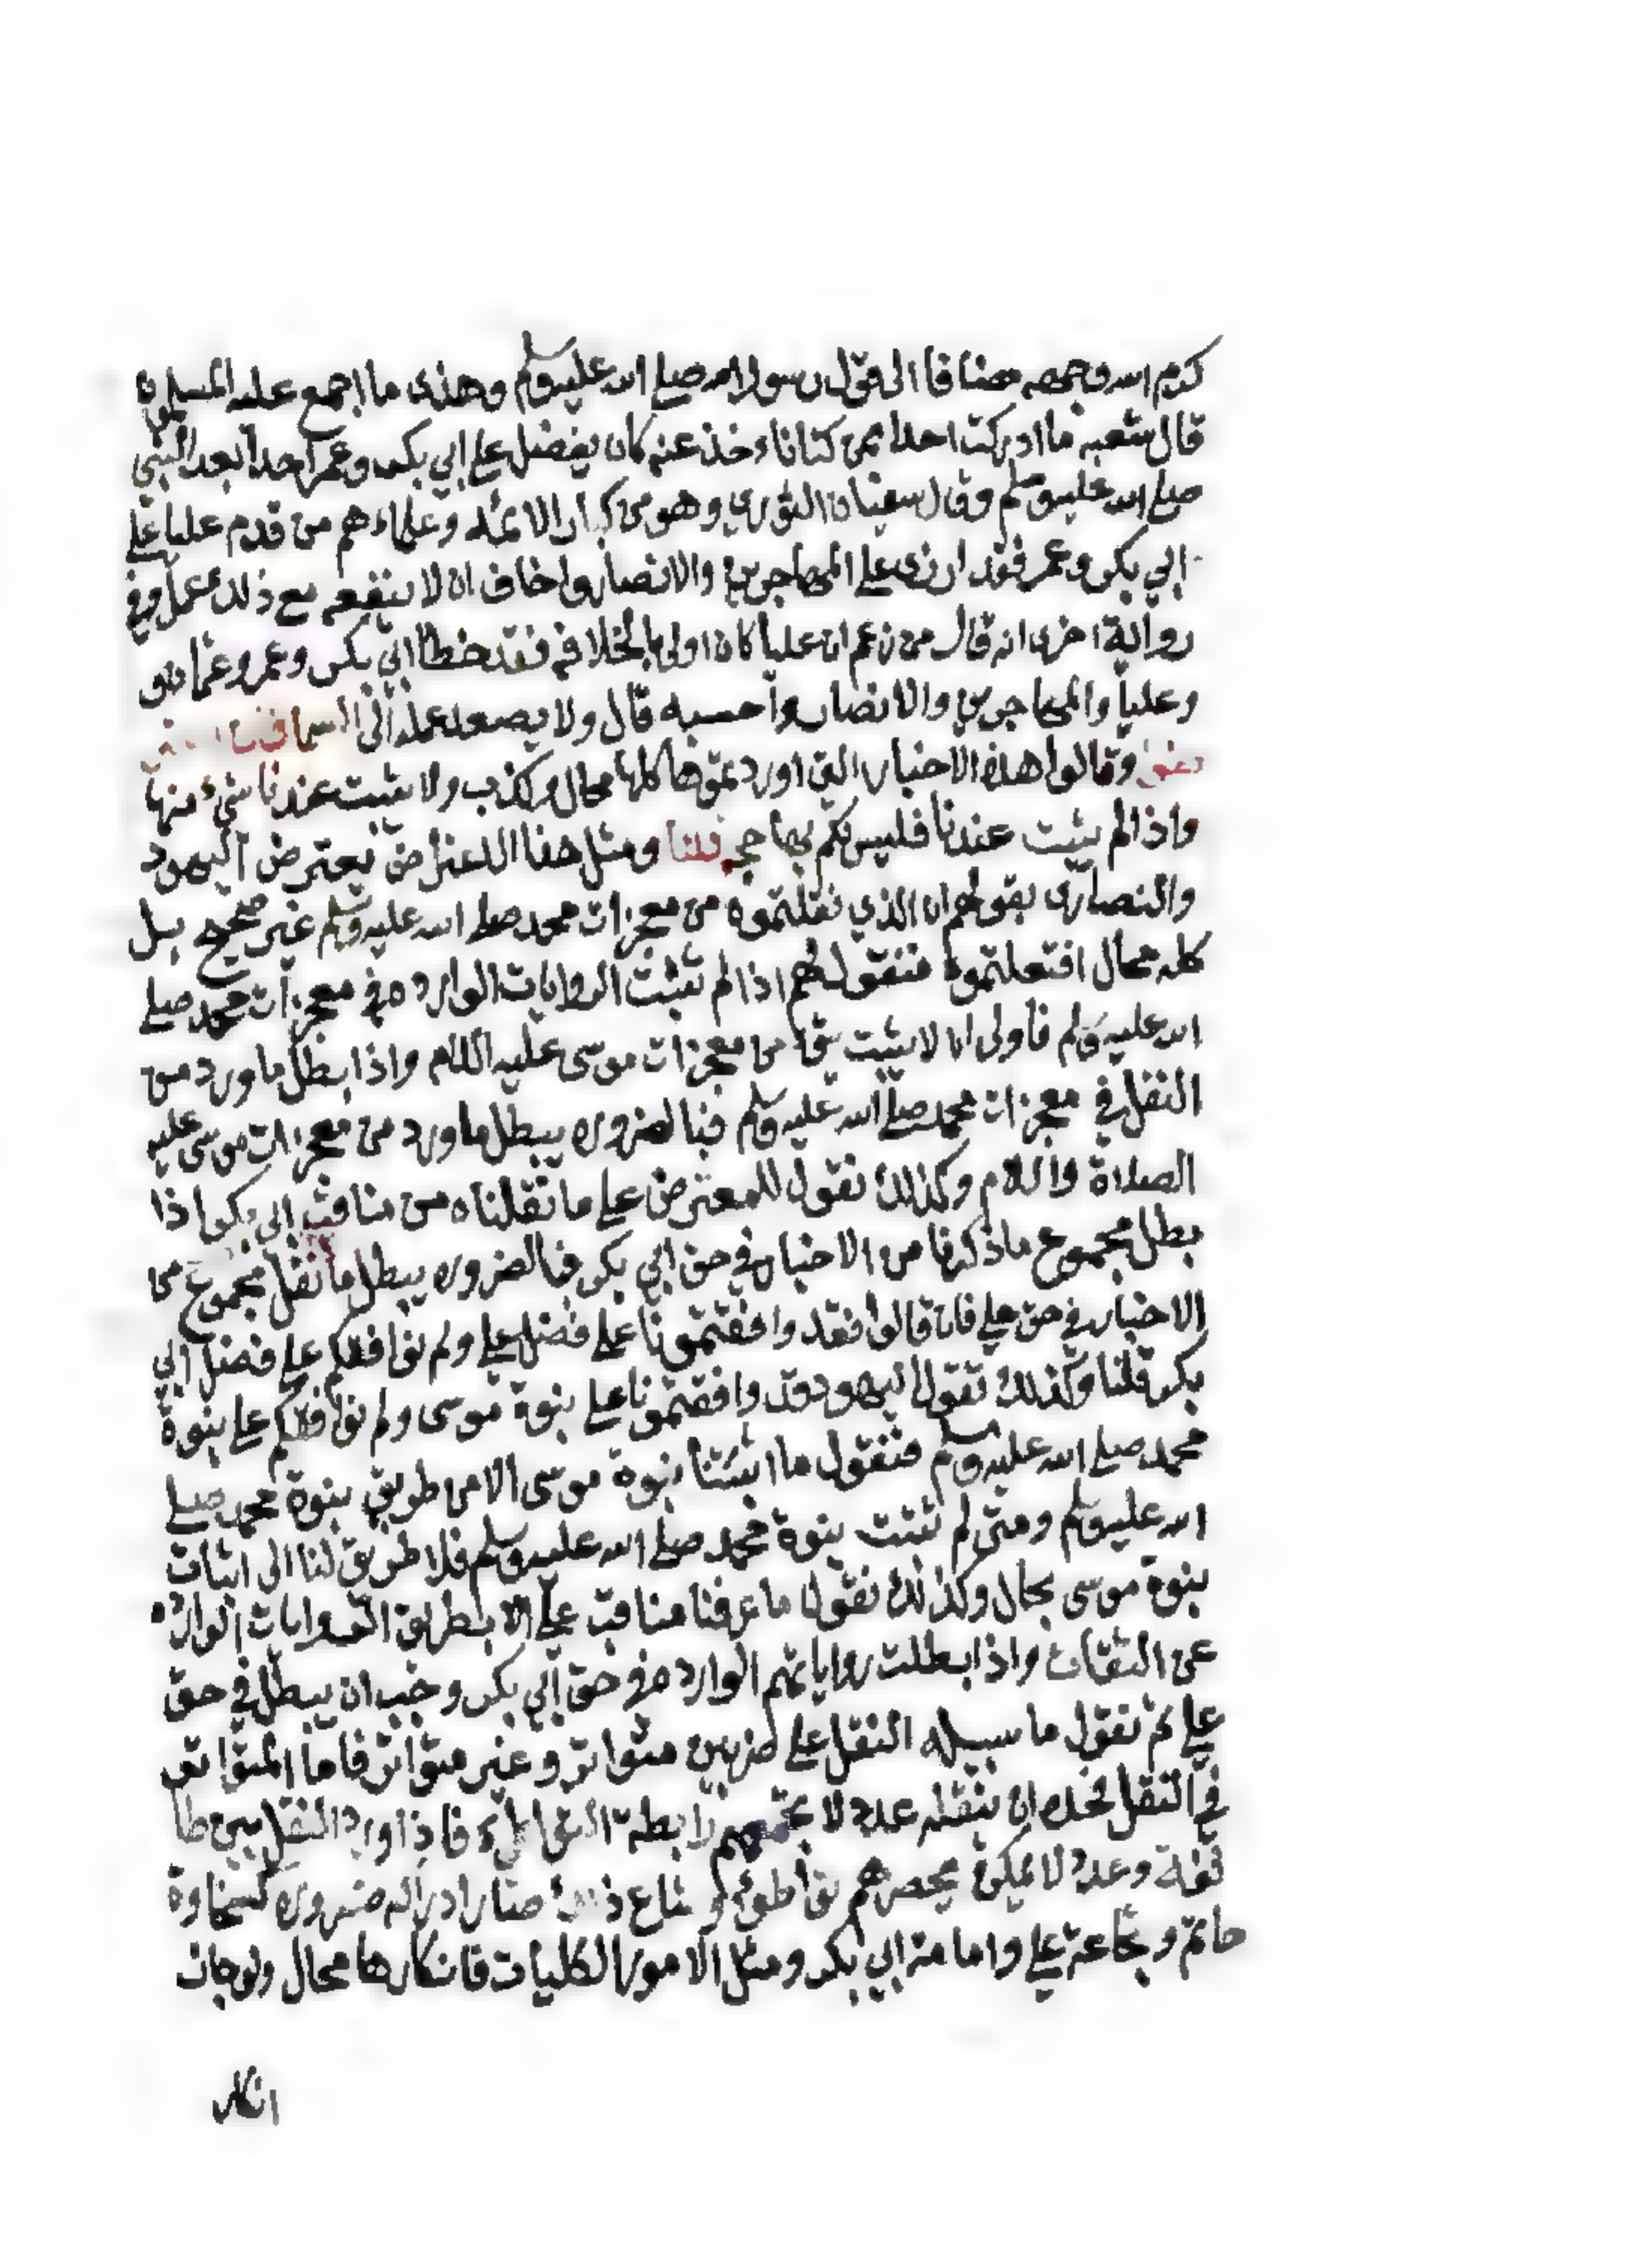 كرم الله وجهه مضافا الى قول رسول الله صلى الله عليه وسلم وهذى ما اجمع عليه المسلمون
قال شعبه ما ادركت احدا ممن كنا ناءخذ عنه كان يفضل على ابي بكر وعمر احدا بعد النبي
صلى الله عليه وسلم وقال سفيان الثوري وهو من كبار الائمه وعلماءهم من قدم عليا على
ابي بكر وعمر فقد ازرى على المهاجرين والانصار واخاف ان لا ينفعه مع ذلك عمل وفي
رواية اخرى انه قال من زعم ان عليا كان اولى بالخلافه فقد خطا ابي بكر وعمر وعثمان
وعليا والمهاجرين والانصار واحسبه قال ولا يصعد عمله الى السما فان
وقالوا هذه الاخبار التي اوردتموها كلها محال وكذب ولا يثبت عندنا شيء منها
واذا لم يثبت عندنا فليس لكم بها حجه قلنا ومثل هذا الاعتراض يعترض اليهود
والنصارى بقولهم ان الذي نقلتموه من معجزات محمد صلى الله عليه وسلم غير صحيح بل
كله محال افتعلتموه فنقول لهم اذا لم تثبت الروايات الوارده في معجزات محمد صلى
الله عليه وسلم فاولى ان لا يثبت شي من معجزات موسى عليه السلام واذا بطل ما ورد من
النقل في معجزات محمد صلى الله عليه وسلم فبالضروره يبطل ما ورد من معجزات موسى عليه
الصلاة والسلام وكذلك نقول للمعترض على ما نقلناه من مناقب ابي بكر اذا
بطل مجموع ما ذكرنا من الاخبار في حق ابي بكر فبالضروره يبطل ما نقل مجموع من
الاخبار في حق علي فان قالوا فقد وافقتمونا على فضل علي ولم نوافقكم على فضل ابي
بكر قلنا وكذلك تقول اليهود قد وافقتمونا على نبوة موسى ولم نوافقكم على نبوة
محمد صلى الله عليه وسلم فنقول ما اثبتنا نبوة موسى الا من طريق نبوة محمد صلى
الله عليه وسلم ومتى لم تثبت نبوة محمد صلى الله عليه وسلم فلا طريق لنا الى اثبات
نبوة موسى بحال وكذلك نقول ما عرفنا مناقب علي الا بطريق الروايات الوارده
عن الثقات واذا بطلت رواياتهم الوارده في حق ابي بكر وجب ان يبطل في حق
علي ثم نقول ما سبيله النقل على ضربين متواتر وغير متواتر فاما المتواتر
في النقل فحده ان ينقله عدد لا تجمعهم رابطة التواطيء فاذا ورد النقل بين طا
ئفة وعدد لا يمكن بحصرهم تواطوء وشاع ذلك صار ادراكه ضروره كسخاوة
حاتم وشجاعة علي وامامة ابي بكر ومثل الامور الكليات فانكارها محال ولو جاز
انكار